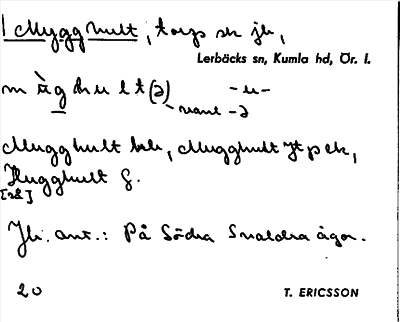 1 Mygghult, torp sk jb,
Lerbäcks sn, Kumla hd, Ör. l.
m ỳ g h u l t (ə) – u –
vanl – ə
Mugghult hkk, Mugghult Jtpek,
Hugghult G.
[så]
Jb. ant.: På Södra Snaldra ägor.
20
T. ERICSSON